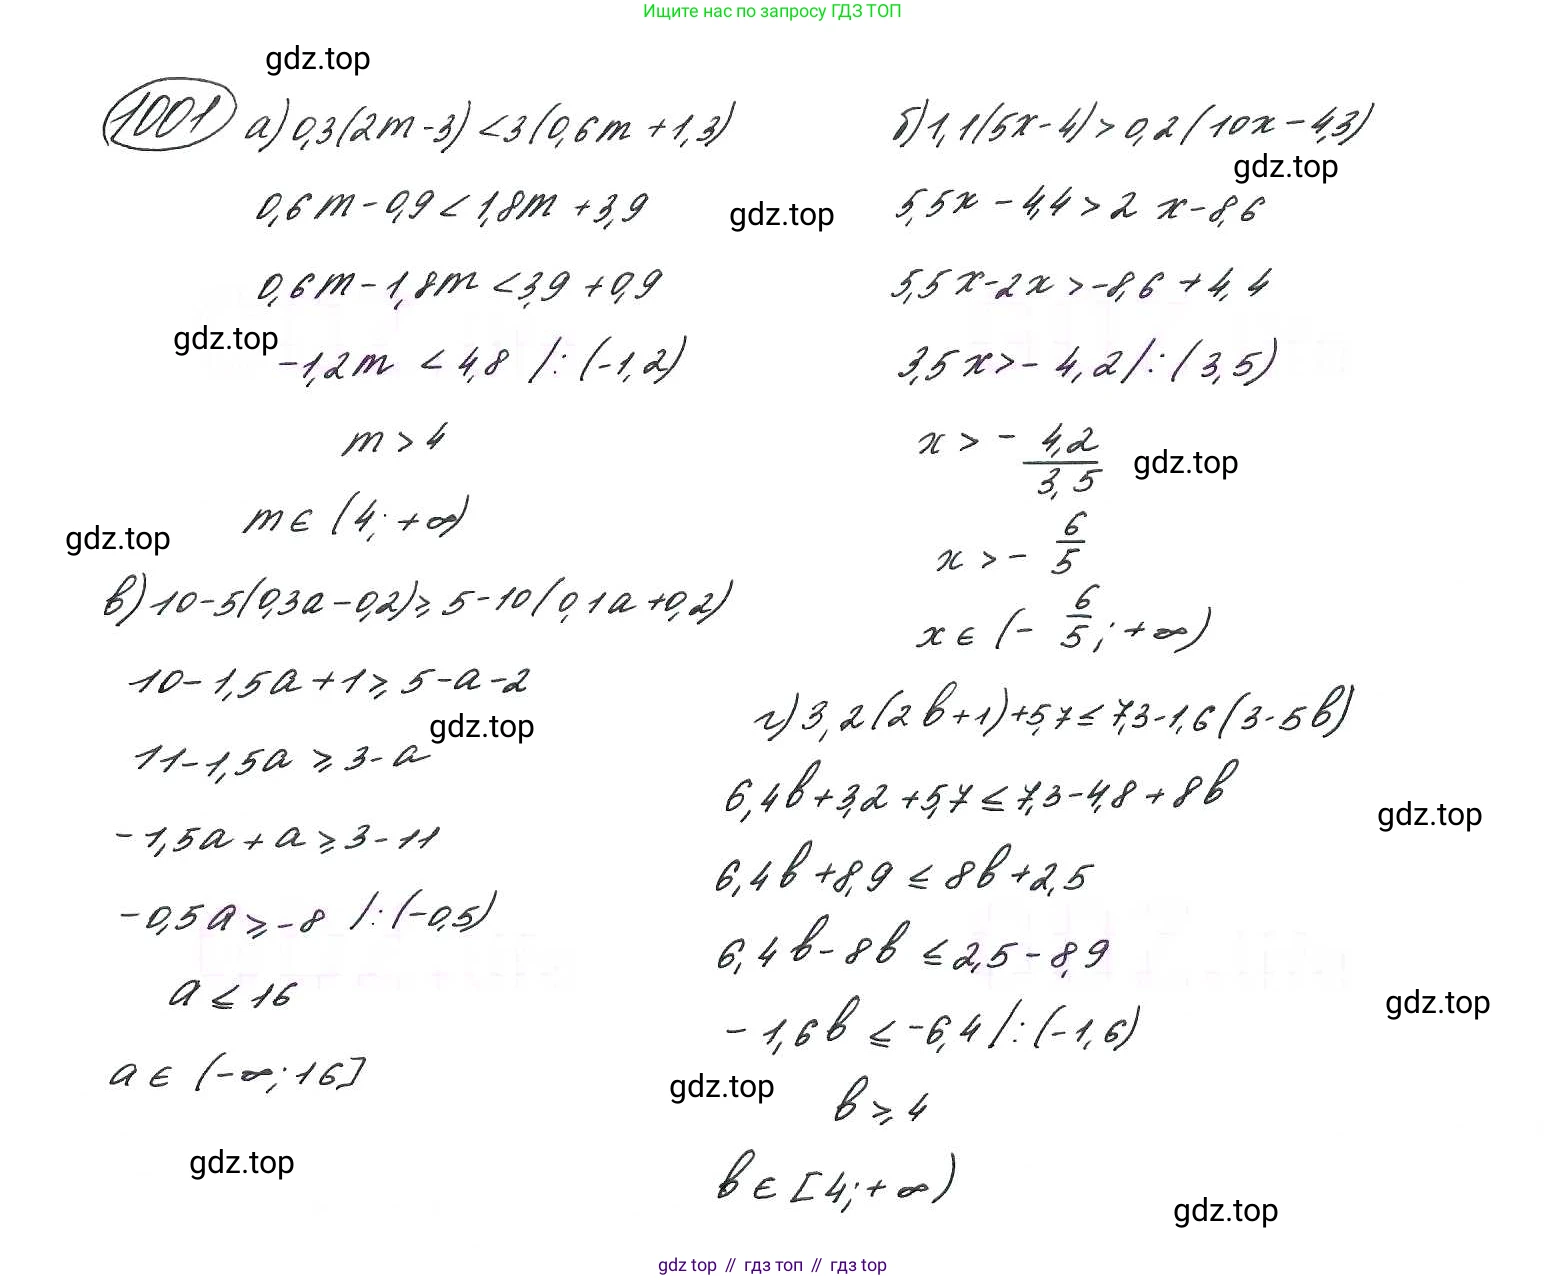 Ищите нас по запросу ГДЗ ТОП
gdz.top
1001 а) 0,3(2m-3)<3(0,6m+1,3)
0,6m-0,9<1,8m+3,9
gdz.top
0,6m-1,8m<3,9+0,9
gdz.top
-1,2m<4,8 |:(-1,2)
m>4
m∈(4;+∞)
gdz.top
б) 1,1(5x-4)>0,2(10x-4,3)
gdz.top
5,5x-4,4>2x-8,6
5,5x-2x>-8,6+4,4
3,5x>-4,2 |:(3,5)
x>-4,2/3,5
gdz.top
x>-6/5
x∈(-6/5;+∞)
в) 10-5(0,3a-0,2)≥5-10(0,1a+0,2)
10-1,5a+1≥5-a-2
gdz.top
11-1,5a≥3-a
-1,5a+a≥3-11
-0,5a≥-8 |:(-0,5)
a≤16
a∈(-∞;16]
gdz.top
г) 3,2(2b+1)+5,7≤7,3-1,6(3-5b)
6,4b+3,2+5,7≤7,3-4,8+8b
gdz.top
6,4b+8,9≤8b+2,5
6,4b-8b≤2,5-8,9
gdz.top
-1,6b≤-6,4 |:(-1,6)
gdz.top
b≥4
b∈[4;+∞)
gdz.top
gdz top // гдз топ // гдз top